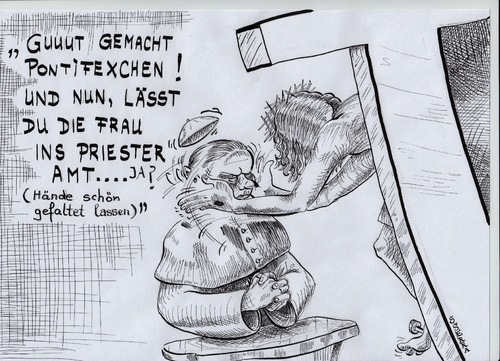 „GUUUT GEMACHT
PONTIFEXCHEN!
UND NUN, LÄSST
DU DIE FRAU
INS PRIESTER
AMT....JA?
(Hände schön
gefaltet lassen)"